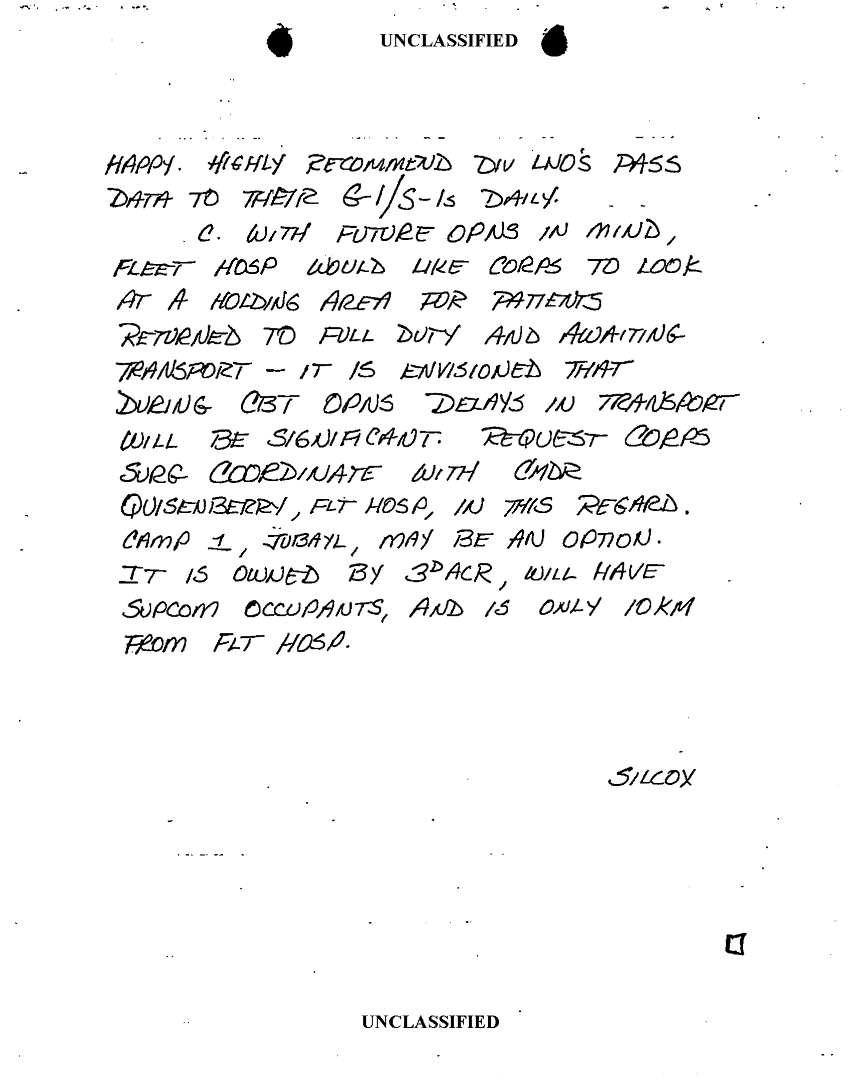 UNCLASSIFIED
HAPPY. HIGHLY RECOMMEND DIV LNO'S PASS
DATA TO THEIR G-1/S-1s DAILY.
C. WITH FUTURE OPNS IN MIND,
FLEET HOSP WOULD LIKE CORPS TO LOOK
AT A HOLDING AREA FOR PATIENTS
RETURNED TO FULL DUTY AND AWAITING
TRANSPORT – IT IS ENVISIONED THAT
DURING CBT OPNS DELAYS IN TRANSPORT
WILL BE SIGNIFICANT. REQUEST CORPS
SURG COORDINATE WITH CMDR
QUISENBERRY, FLT HOSP, IN THIS REGARD.
CAMP 1, JUBAYL, MAY BE AN OPTION.
IT IS OWNED BY 3D ACR, WILL HAVE
SUPCOM OCCUPANTS, AND IS ONLY 10KM
FROM FLT HOSP.
SILCOX
UNCLASSIFIED